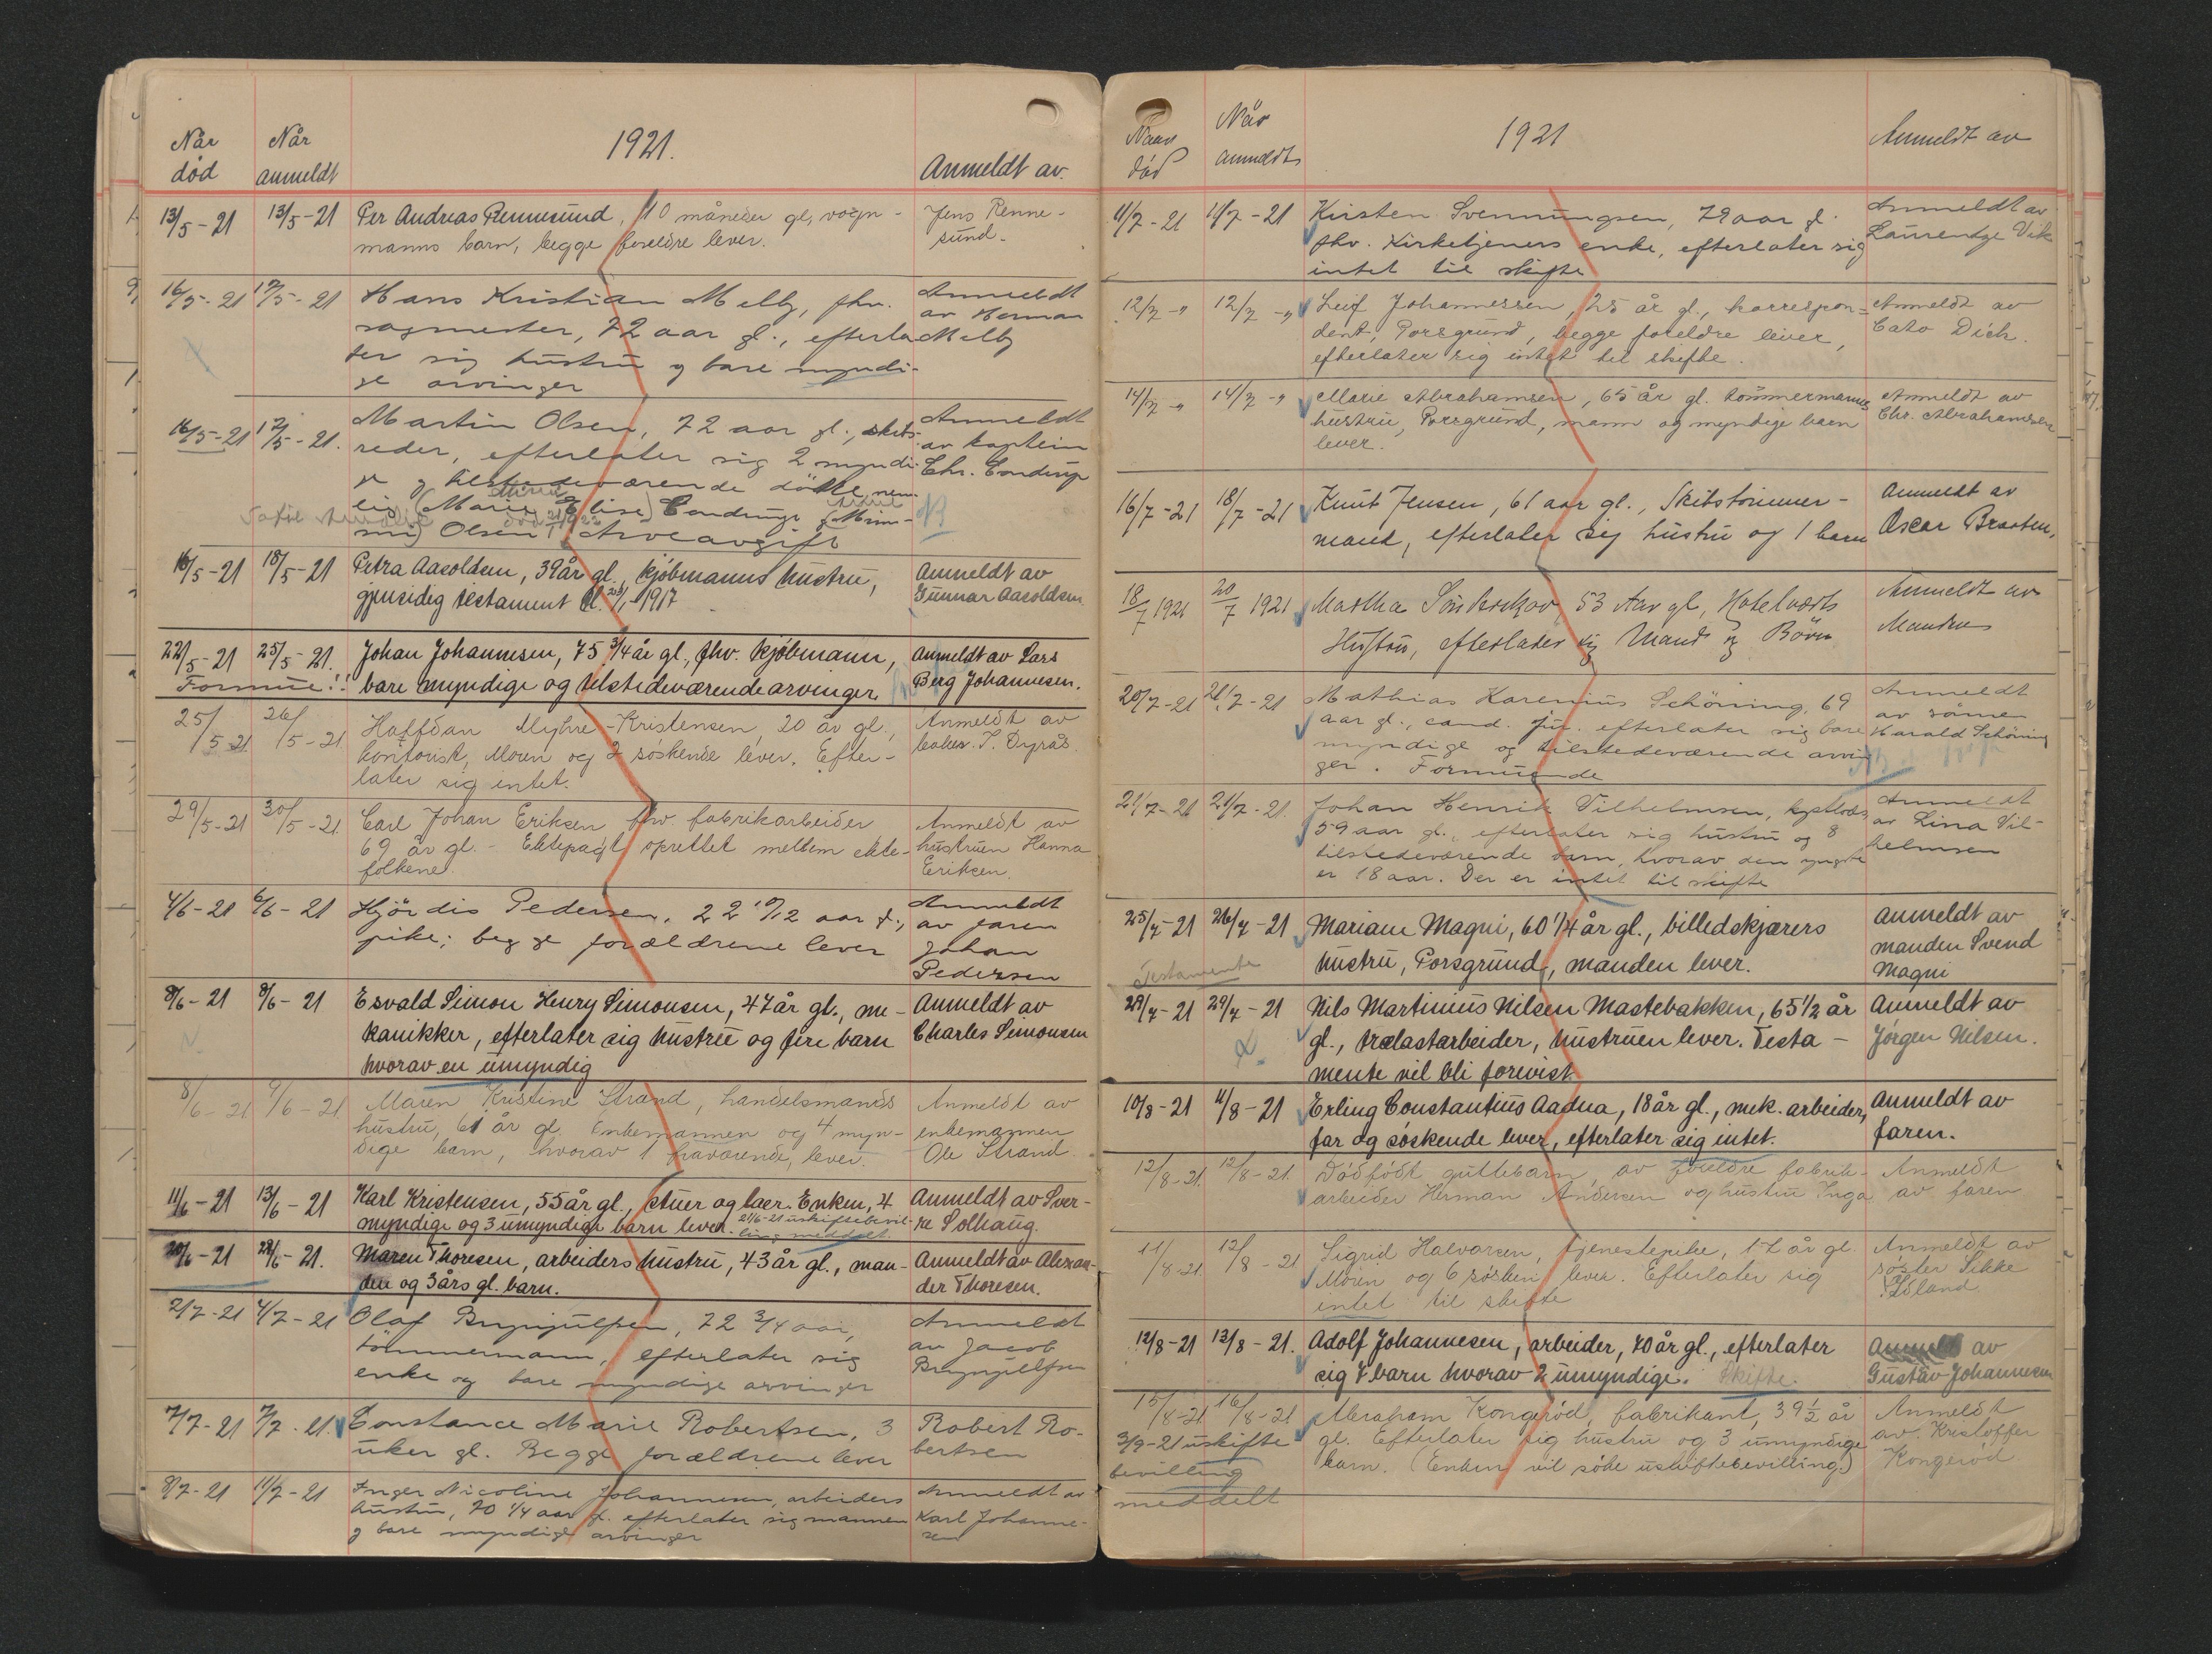 Når død
Når anmeldt
1921.
Anmeldt av.
13/5-21 13/5-21 Per Andreas Rennesund, 10 måneder gl, vogn- Jens Renne-
manns barn, begge foreldre lever. sund.
16/5-21 17/5-21 Hans Kristian Melby, fhv. Anmeldt
sagmester, 72 aar gl., efterla av Herman
ter sig hustru og bare myndi- Melby
ge arvinger
16/5-21 17/5-21. Martin Olsen, 72 aar gl., skibs- Anmeldt
reder, efterlater sig 2 myndi- av kaptein
ge og tilstedeværende døttre, nem- Chr. Condrup
lig (Marie Elise) Condrup
Olsen Arveavgift
16/5-21 18/5-21 Petra Aasoldsen, 39 år gl., kjøbmanns hustru, Anmeldt av
gjensidig testament 1917 Gunnar Aasoldsen
22/5-21 25/5-21. Johan Johannesen, 75 3/4 år gl., fhv. kjøbmann, Anmeldt av Lars
Formue!! bare myndige og tilstedeværende arvinger Berg Johannesen.
25/5-21 26/5-21 Halfdan Myhre-Kristensen, 20 år gl., Anmeldt av
kontorist, Moren og 2 søskende lever. Efter- J. Dyrås.
later sig intet.
29/5-21 30/5-21 Carl Johan Eriksen fhv. fabrikarbeider Anmeldt av
69 år gl. - Ektepagt oprettet mellem ekte- hustruen Hanna
folkene. Eriksen.
4/6-21 6/6-21 Hjördis Pedersen, 22 10/12 aar gl., Anmeldt
pike; begge forældrene lever av faren
Johan
Pedersen
8/6-21 8/6-21 Esvald Simon Henry Simonsen, 47 år gl., me- Anmeldt av
kanikker, efterlater sig hustru og fire barn Charles Simonsen
hvorav en umyndig
8/6-21 9/6-21 Maren Kristine Strand, handelsmanns Anmeldt av
hustru, 61 år gl. Enkemannen og 4 myn- enkemannen
dige barn, hvorav 1 fraværende, lever. Ole Strand.
11/6-21 13/6-21 Karl Kristensen, 55 år gl., stuer og laer. Enken, 4 Anmeldt av Sver-
myndige og 3 umyndige barn lever. 21/6-21 uskiftebevil- re Solhaug.
ling meddelt.
20/6-21 28/6-21. Maren Thoresen, arbeiders hustru, 43 år gl., man- Anmeldt av Alexan-
den og 3 års gl. barn. der Thoresen.
2/7-21 4/7-21 Olaf Brynjulfsen, 72 3/4 aar, Anmeldt
tömmermann, efterlater sig av Jacob
enke og bare myndige arvinger Brynjulfsen
7/7-21 7/7-21. Constance Marie Robertsen, 3 Robert Ro-
uker gl. Begge forældrene lever bertsen
8/7-21 11/7-21 Inger Nicoline Johannesen, arbeiders Anmeldt av
hustru, 70 1/4 aar gl. efterlater sig mannen Karl Johanne-
og bare myndige arvinger sen
Naar død
Når anmeldt
1921
Anmeldt av
11/7-21 11/7-21 Kirsten Svenningsen, 79 aar gl. Anmeldt av
fhv. Kirketjeners enke, efterlater sig Laurentze Vik
intet til skifte
12/7-" 12/7-" Leif Johannessen, 25 år gl., korrespon- Anmeldt av
dent, Porsgrund, begge foreldre lever, Cato Dich.
efterlater sig intet til skifte.
14/7-" 14/7-" Marie Abrahamsen, 65 år gl. tömmermanns Anmeldt av
hustru, Porsgrund, mann og myndige barn Chr. Abrahamsen
lever.
16/7-21 18/7-21 Knut Jensen, 61 aar gl., Skibstömmer- Anmeldt av
mand, efterlater sig hustru og 1 barn Oscar Braaten,
18/7 1921 20/7 1921 Martha Sönderskov, 53 Aar gl, Hotelværts Anmeldt av
Hustru, efterlader sig Mand og Börn Manden
20/7-21 21/7-21 Mathias Karenius Schöning, 69 Anmeldt
aar gl., cand. jur. efterlater sig bare av sönnen
myndige og tilstedeværende arvin Harald Schöning
ger. Formuende
21/7-21 21/7-21. Johan Henrik Vilhelmsen, Anmeldt
59 aar gl., efterlater sig hustru og 8 av Lina Vil-
tilstedeværende barn, hvorav den yngste helmsen
er 18 aar. Der er intet til skifte
25/7-21 26/7-21 Mariane Magni, 60 1/4 år gl., billedskjærers Anmeldt av
hustru, Porsgrund, manden lever. manden Svend
Testamente Magni
29/7-21 29/7-21 Nils Martinius Nilsen Mastebakken, 65 1/2 år Anmeldt av
gl., trælastarbeider, hustruen lever. Testa- Jörgen Nilsen.
mente vil bli forevist.
10/8-21 11/8-21 Erling Constantius Aadna, 18 år gl., mek. arbeider, Anmeldt av
far og søskende lever, efterlater sig intet. faren.
12/8-21. 12/8-21. Dödfödt guttebarn, av foreldre fabrik- Anmeldt
arbeider Herman Andersen og hustru Inga av faren
11/8-21. 12/8-21 Sigrid Halvorsen, tjenestepike, 17 år gl. Anmeldt av
Moren og 6 søsken lever. Efterlater sig søster Sikke
intet til skifte Löland
12/8-21 13/8-21. Adolf Johannesen, arbeider, 70 år gl., efterlater Anmeldt av
sig 7 barn hvorav 2 umyndige. Skifte. Gustav Johannesen
15/8-21 16/8-21 Abraham Kongeröd, fabrikant, 39 1/2 år Anmeldt
3/9-21 uskifte gl. Efterlater sig hustru og 3 umyndige av Kristoffer
bevilling barn. (Enken vil söke uskiftebevilling.) Kongeröd
meddelt